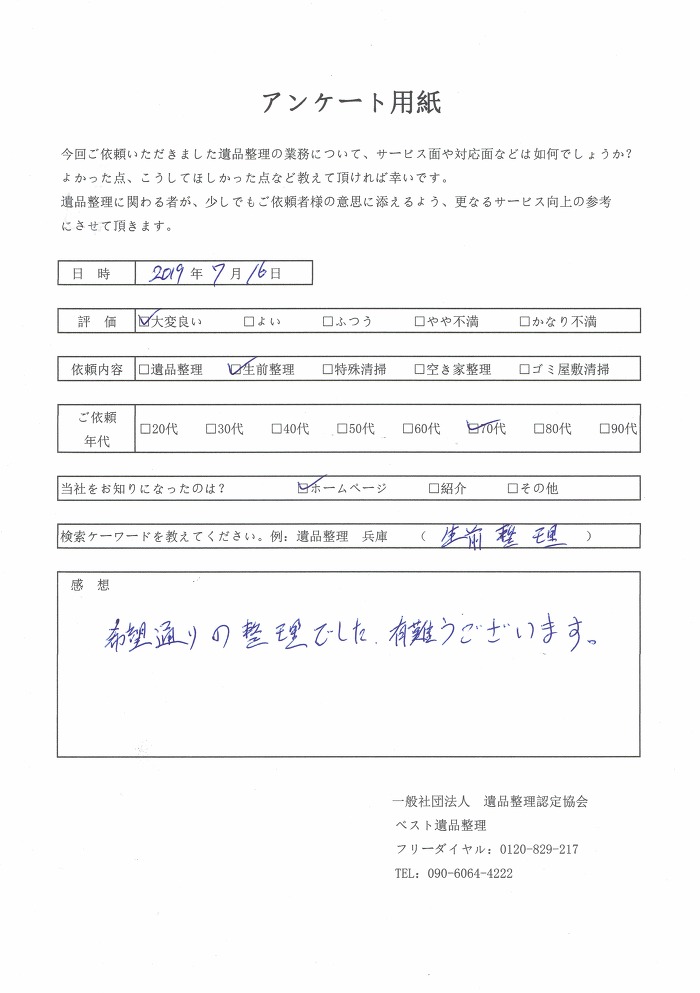 アンケート用紙
今回ご依頼いただきました遺品整理の業務について、サービス面や対応面などは如何でしょうか?
よかった点、こうしてほしかった点など教えて頂ければ幸いです。
遺品整理に関わる者が、少しでもご依頼者様の意思に添えるよう、更なるサービス向上の参考
にさせて頂きます。
日 時 2019年 7月 16日
評 価 ☑大変良い □よい □ふつう □やや不満 □かなり不満
依頼内容 □遺品整理 ☑生前整理 □特殊清掃 □空き家整理 □ゴミ屋敷清掃
ご依頼
年代
□20代 □30代 □40代 □50代 □60代 ☑70代 □80代 □90代
当社をお知りになったのは? ☑ホームページ □紹介 □その他
検索ケーワードを教えてください。例:遺品整理 兵庫 ( 生前整理 )
感 想
希望通りの整理でした、有難うございます。
一般社団法人 遺品整理認定協会
ベスト遺品整理
フリーダイヤル:0120-829-217
TEL:090-6064-4222